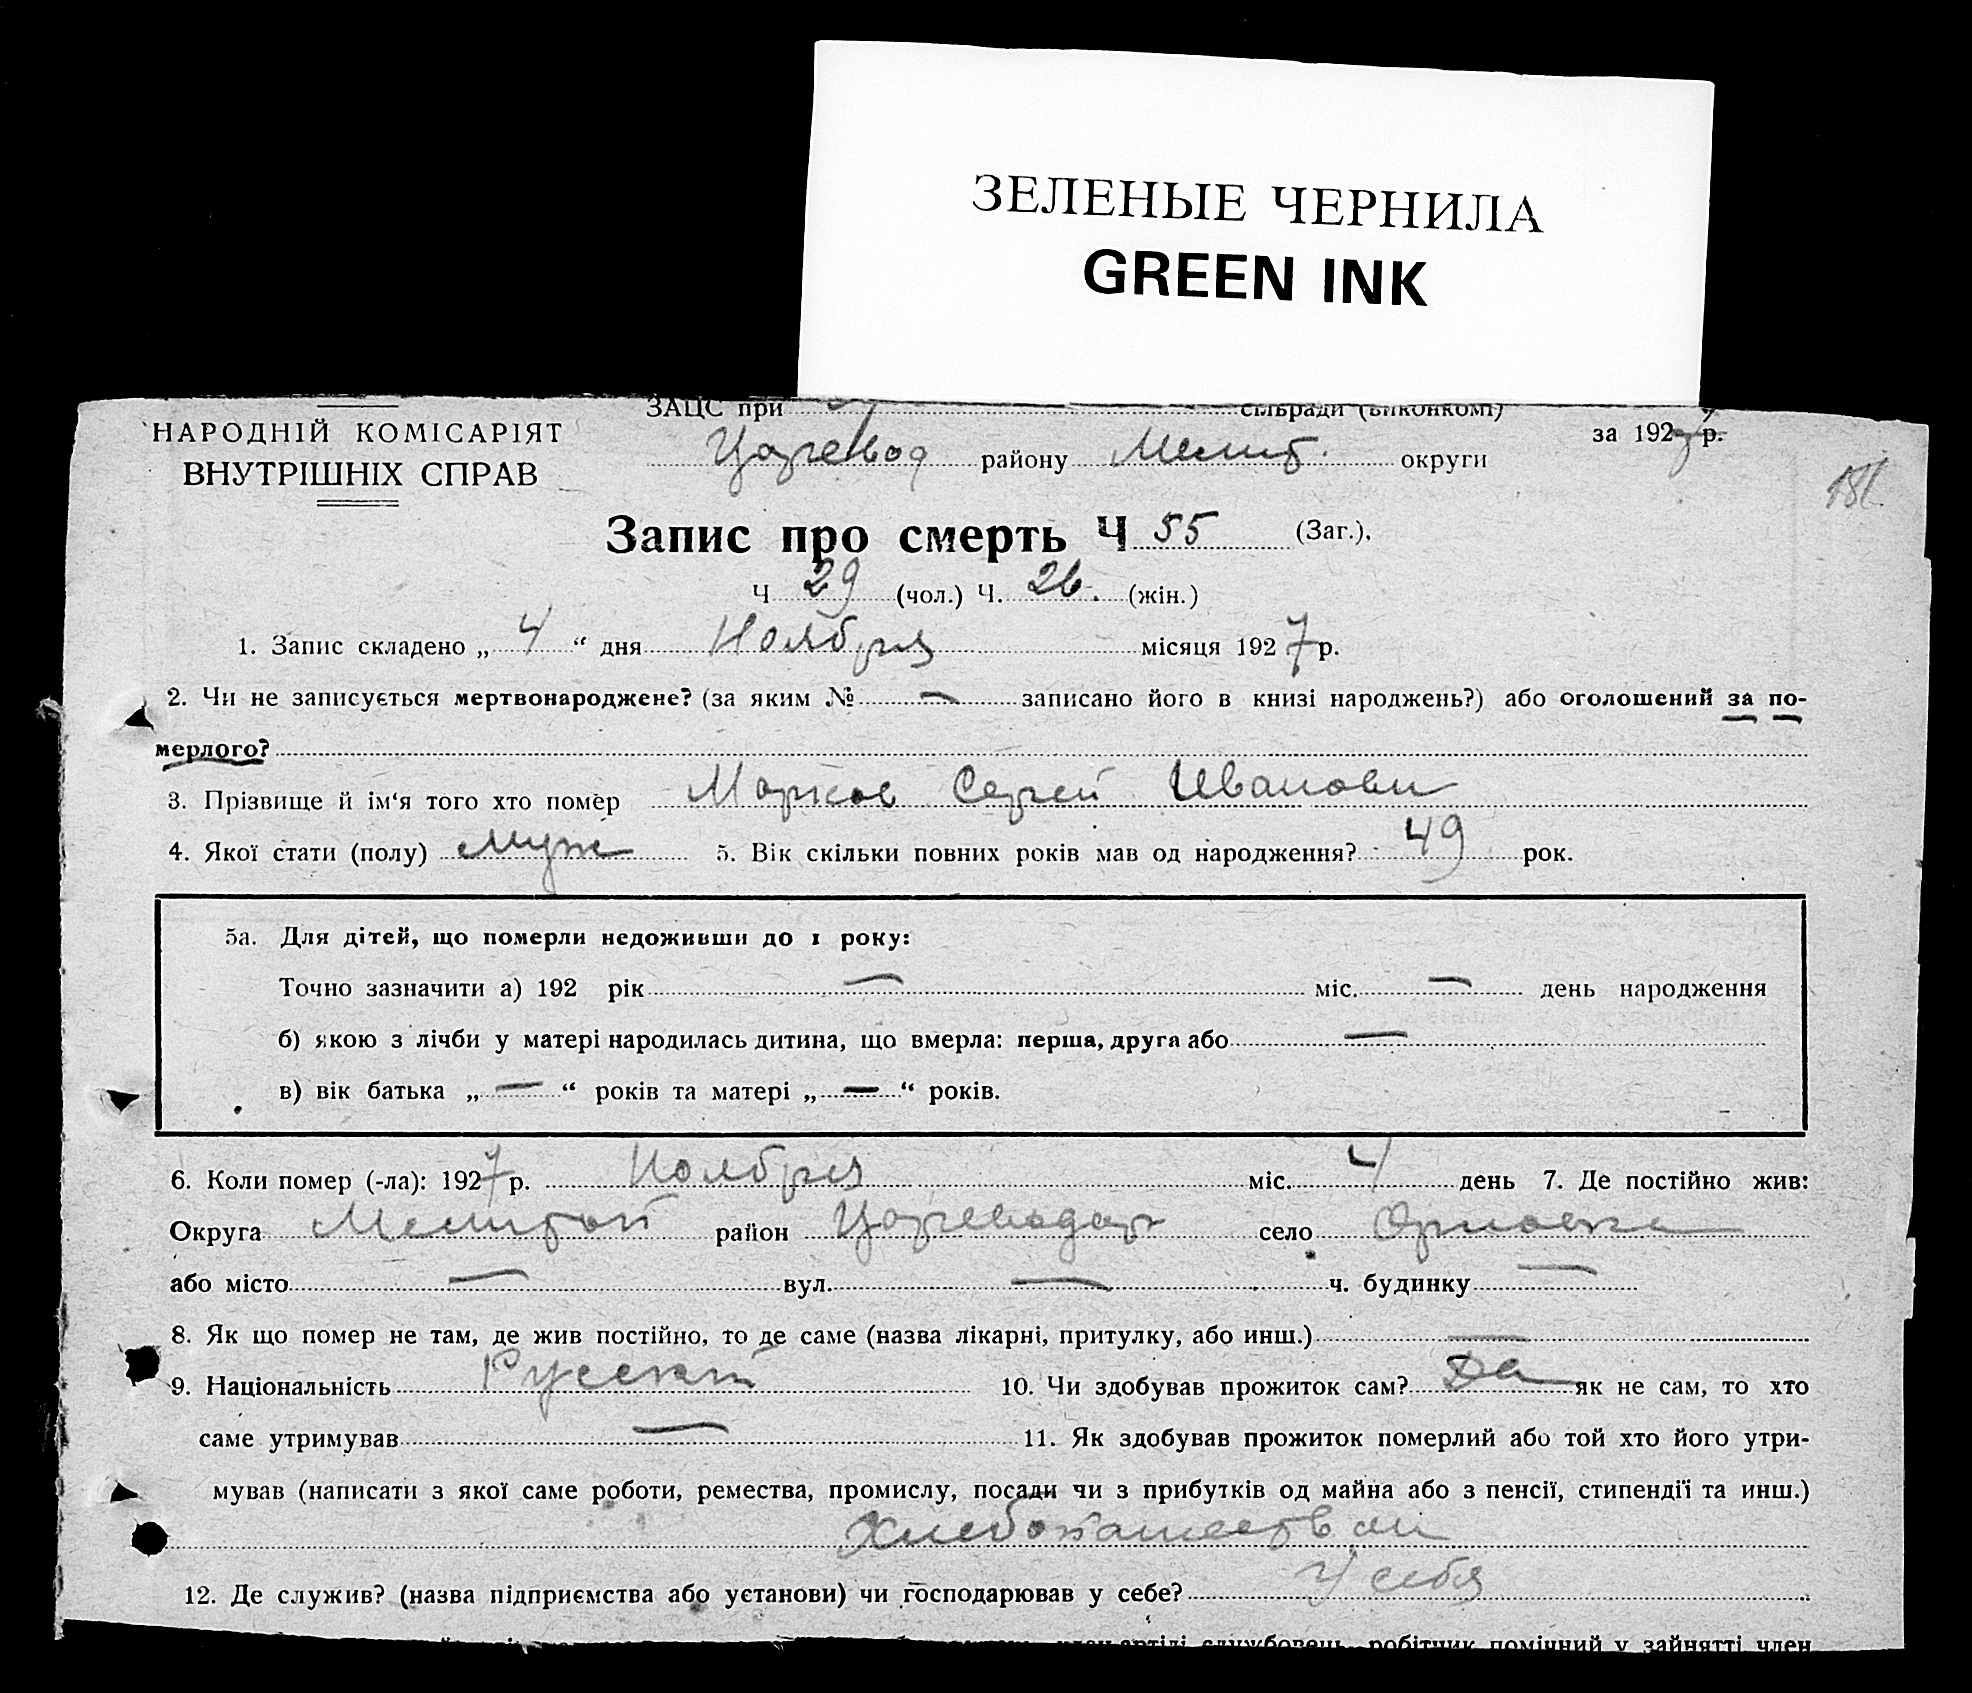 ЗЕЛЕНЫЕ ЧЕРНИЛА
GREEN INK
ЗАЦС при сільради (виконкомі)
НАРОДНІЙ КОМІСАРІЯТ за 1927 р.
Царевод району Мелит. округи
ВНУТРІШНІХ СПРАВ
Запис про смерть Ч 55 (Заг.).
Ч 29 (чол.) Ч. 26. (жін.)
1. Запис складено „ 4 “ дня Ноября місяця 1927 р.
2. Чи не записується мертвонароджене? (за яким № — записано його в книзі народжень?) або оголошений за по-
мерлого?
3. Прізвище й ім‘я того хто помер Марков Сергей Иванови
4. Якої стати (полу) муж 5. Вік скільки повних років мав од народження? 49 рок.
5а. Для дітей, що померли недоживши до 1 року:
Точно зазначити а) 192 рік — міс. — день народження
б) якою з лічби у матері народилась дитина, що вмерла: перша, друга або —
в) вік батька „ — “ років та матері „ — “ років.
6. Коли помер (-ла): 1927 р. Ноября міс. 4 день 7. Де постійно жив:
Округа Мелитоп район Цареводар село Орловка
або місто — вул. — ч. будинку —
8. Як що помер не там, де жив постійно, то де саме (назва лікарні, притулку, або инш.) —
9. Національність Русский 10. Чи здобував прожиток сам? Да як не сам, то хто
саме утримував — 11. Як здобував прожиток померлий або той хто його утри-
мував (написати з якої саме роботи, ремества, промислу, посади чи з прибутків од майна або з пенсії, стипендії та инш.)
Хлебопашеством
12. Де служив? (назва підприємства або установи) чи господарював у себе? У себя
артілі службовець, робітник помічний у зайнятті член